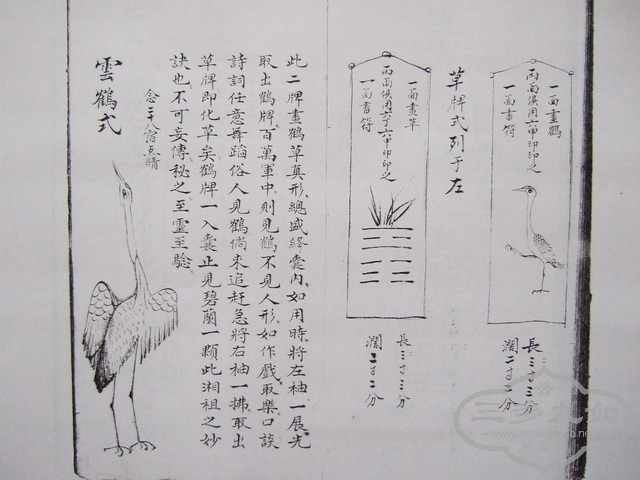 一面畫鶴
兩面俱用六甲印印之
一面書符
長三寸三分
濶二寸二分
草牌式列于左
一面畫草
兩面俱用六丁六甲印印之
一面書符
長三寸三分
濶二寸二分
此二牌畫鶴草真形總盛絳囊内如用時將左袖一展先
取出鶴牌百萬軍中則見鶴不見人形如作戲取樂口談
詩詞任意舞蹈俗人見鶴倘来追赶急將右袖一拂取出
草牌即化草矣鶴牌一入囊止見碧蘭一顆此湘祖之妙
訣也不可妄傳秘之至靈至驗
念二十八宿点睛
雲鶴式
三多九如